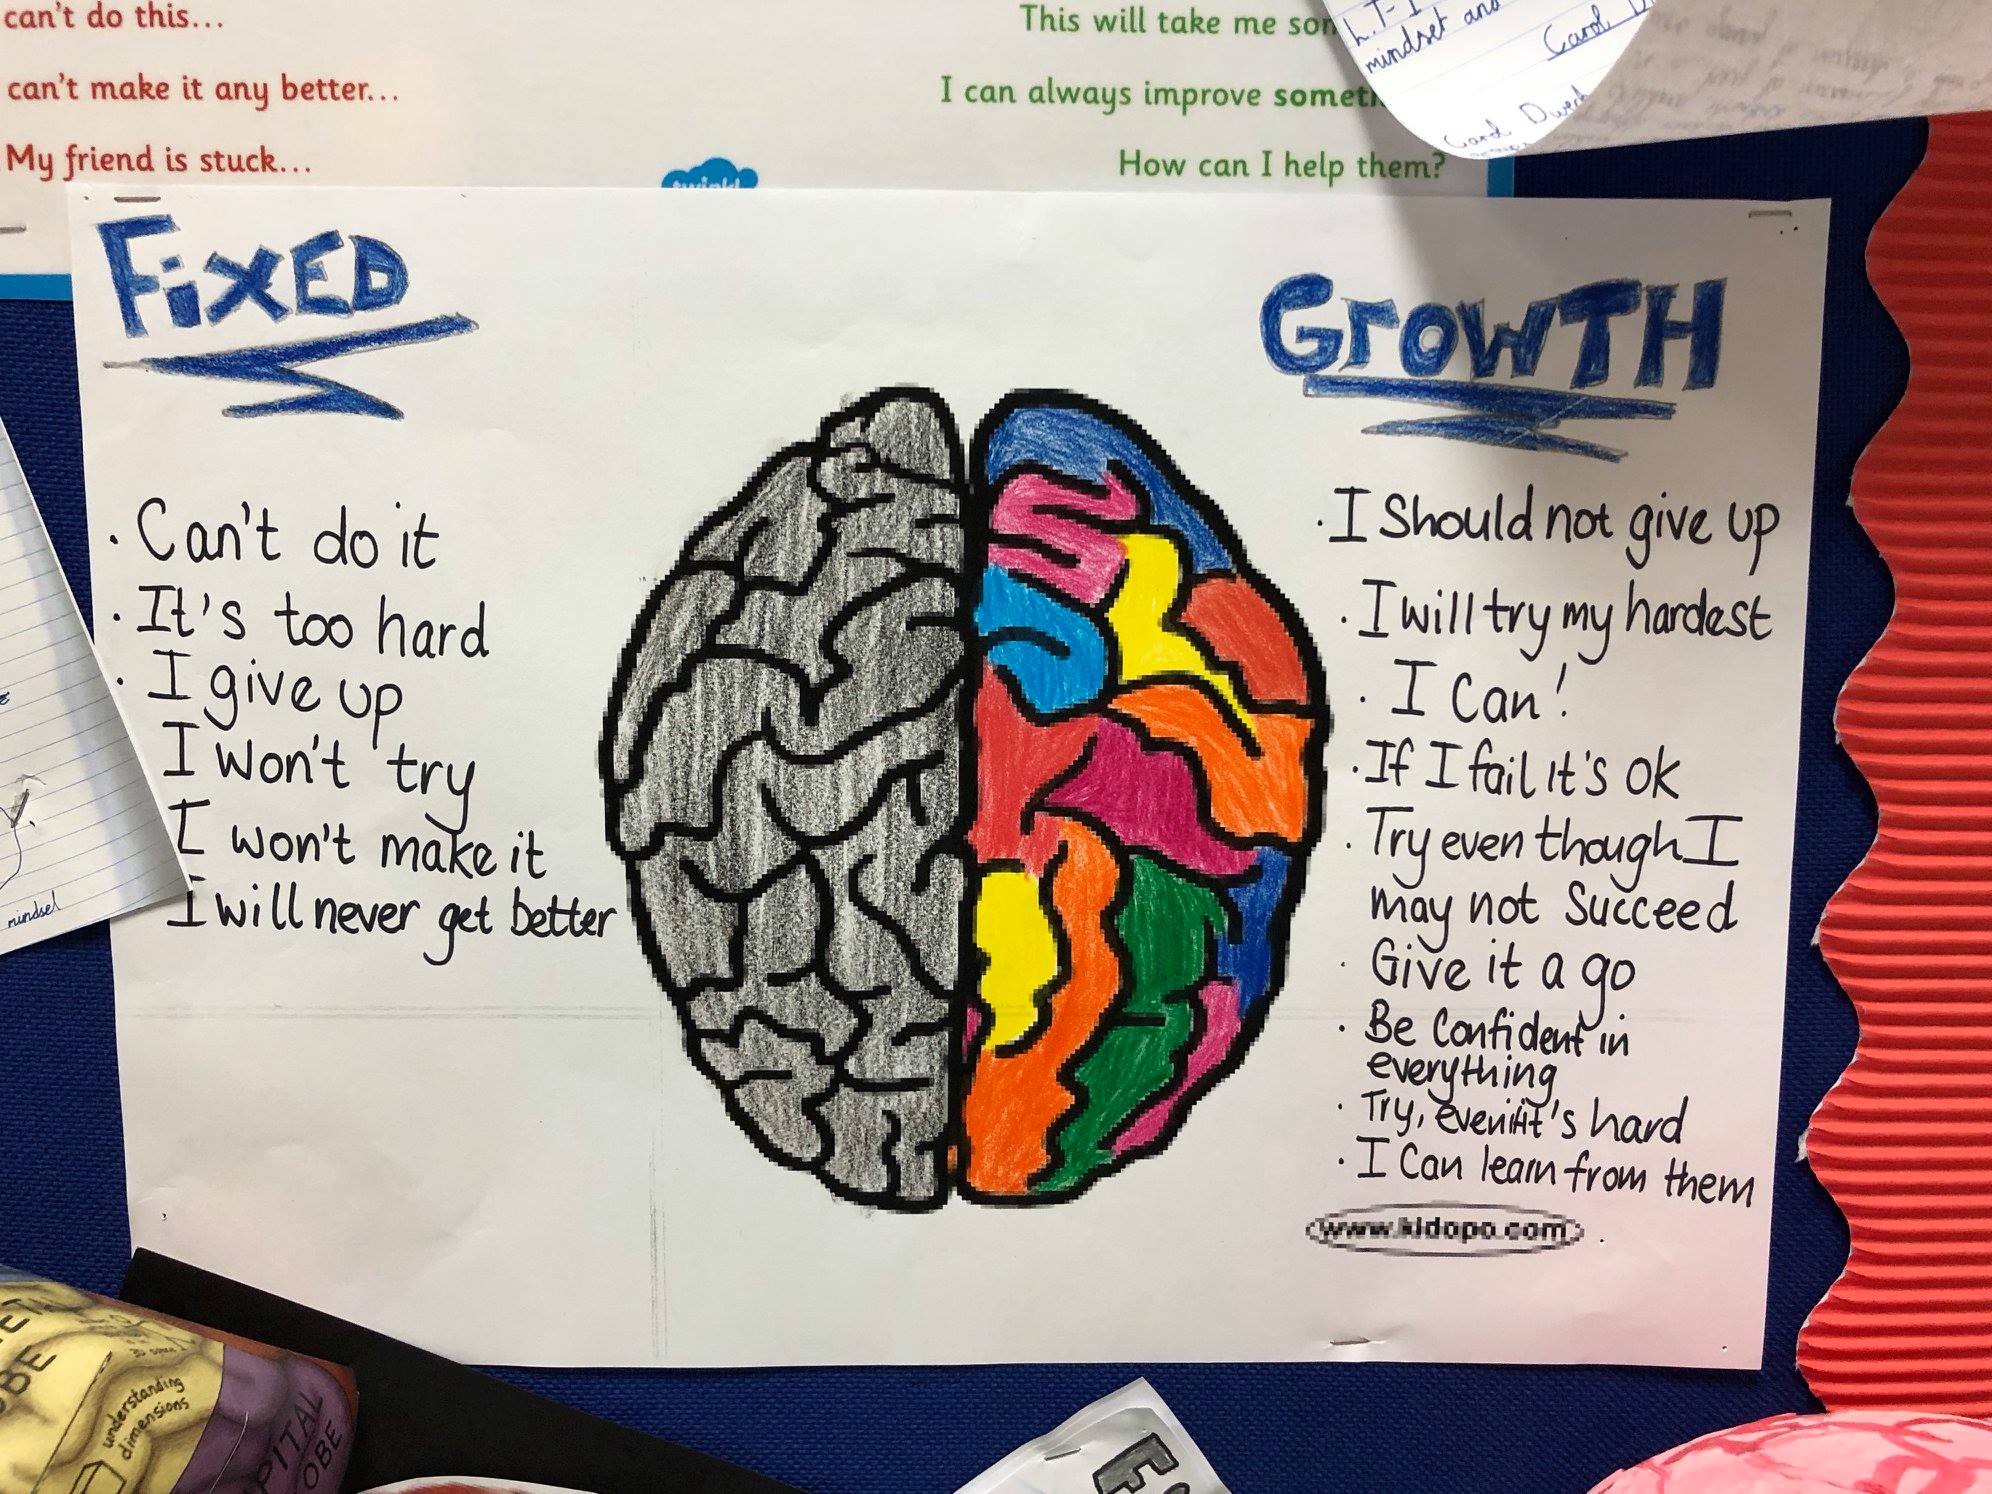 can't do this...
can't make it any better...
My friend is stuck...
This will take me
I can always improve
How can I help them?
twinkl
L.T-I
mindset and
Carol
Carol Dweck
FixED
· Can't do it
· It's too hard
· I give up
I won't try
I won't make it
I will never get better
GrowTH
· I Should not give up
· I will try my hardest
· I Can!
· If I fail it's ok
· Try even though I
may not Succeed
· Give it a go
· Be Confident in
everything
· Try, even if it's hard
· I Can learn from them
www.kidopo.com
mindset
understanding
dimensions